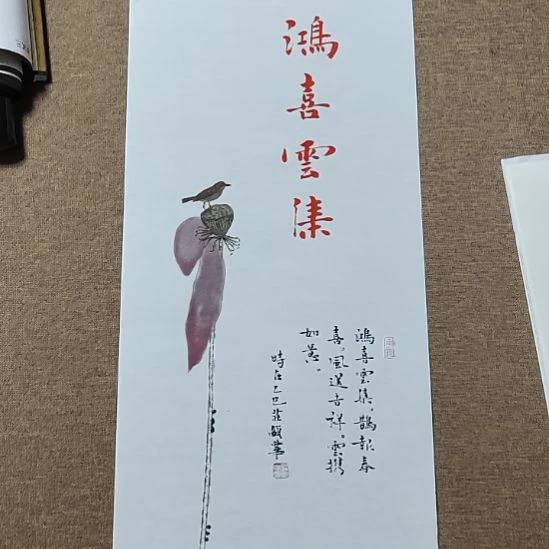 鴻喜雲集
鴻喜雲集，鵲報春
喜，風送吉祥。雲携
如意。
時占乙巳莊